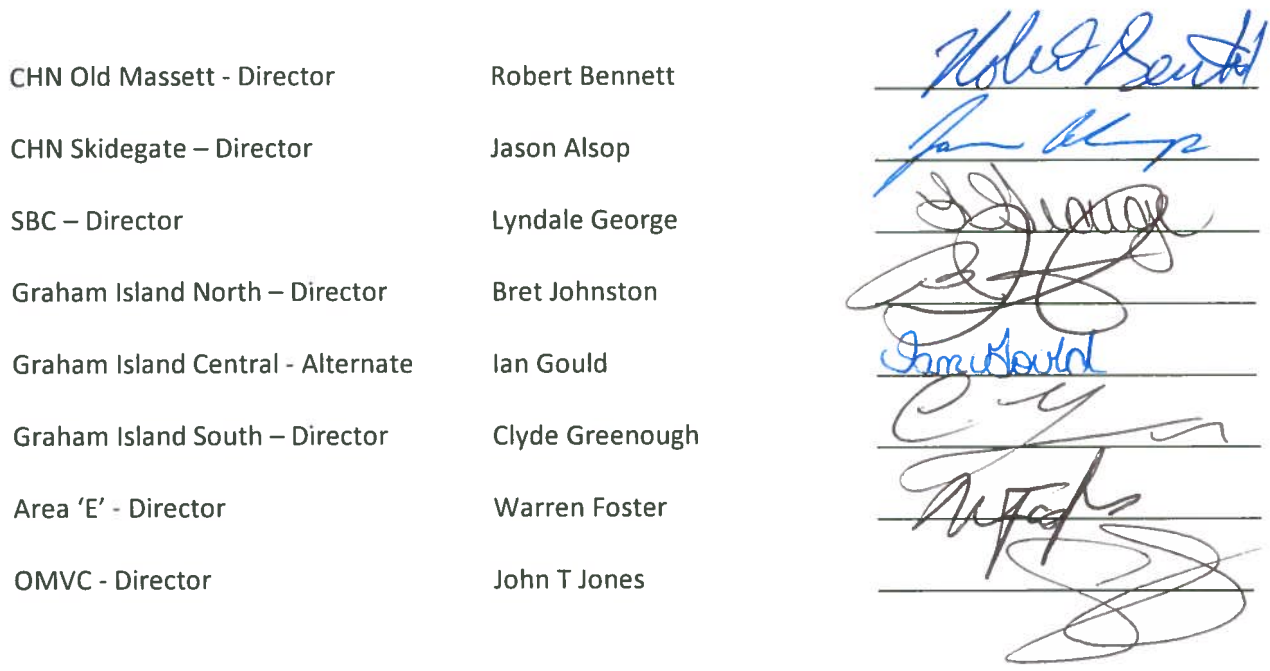 CHN Old Massett - Director Robert Bennett Robert Bennett
CHN Skidegate – Director Jason Alsop
SBC – Director Lyndale George
Graham Island North – Director Bret Johnston
Graham Island Central - Alternate Ian Gould Ian Gould
Graham Island South – Director Clyde Greenough
Area ‘E’ - Director Warren Foster
OMVC - Director John T Jones